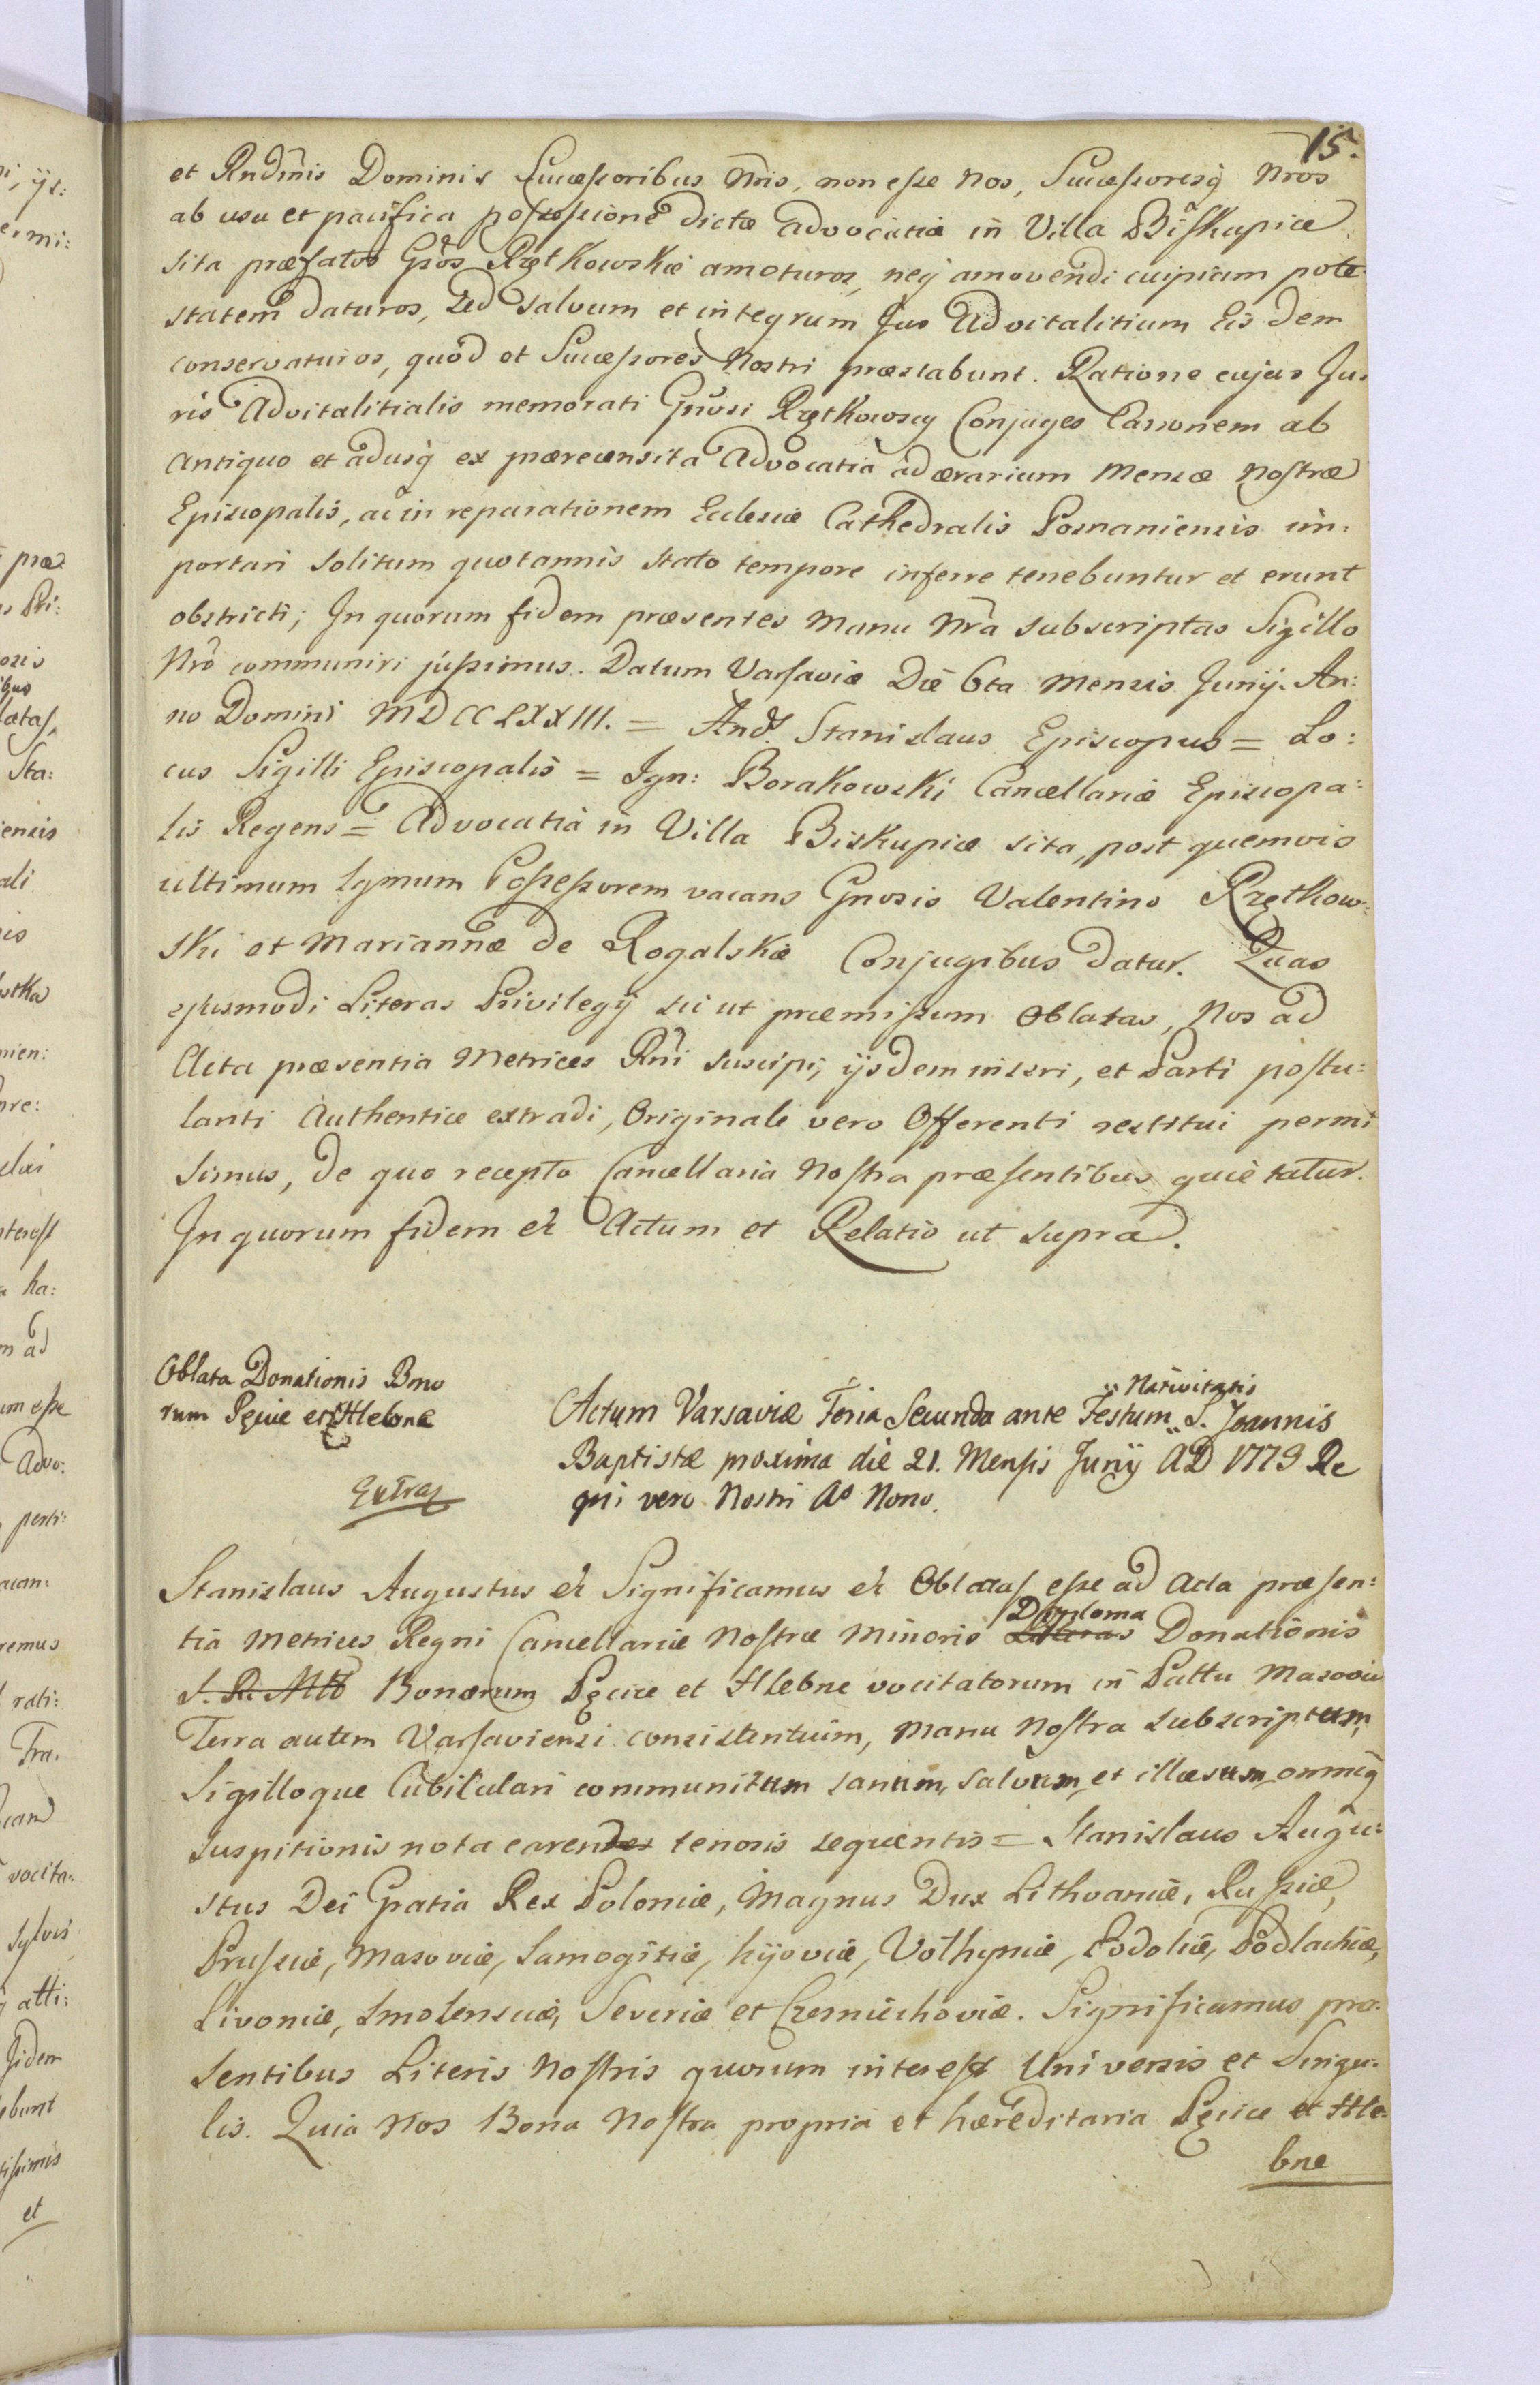 15.
et Rndmis Dominis Successoribus Nris, non esse Nos, Successoresq Nros
ab usu et pacifica possessione dictæ Advocatiæ in Villa Biskupice
sita præfatos Gsos Rzętkowskie amoturos, neq amovendi cuipiam pote
statem daturos, sed salvum et integrum Jus Advitalitium Eisdem
conservaturos, quod et Successores Nostri præstabunt. Ratione cujus Ju
ris Advitalitialis memorati Gnosi Rzętkowscy Conjuges Canonem ab
antiquo et adusq ex prærecensita Advocatia ad ærarium Mensæ Nostræ
Episcopalis, ac in reparationem Ecclesiæ Cathedralis Posnaniensis im:
portari solitum quotannis stato tempore inferre tenebuntur et erunt
obstricti; In quorum fidem præsentes Manu Nra subscriptas Sigillo
Nro communiri jussimus. Datum Varsaviæ Die 6ta Mensis Junij. An:
no Domini MDCCLXXIII. = And. Stanislaus Episcopus = Lo:
cus Sigilli Episcopalis = Ign: Borakowski Cancellariæ Episcopa:
lis Regens = Advocatia in Villa Biskupice sita, post quemvis
ultimum lgmum Possessorem vacans Gnosis Valentino Rzętkow:
ski et Mariannæ de Rogalskie Conjugibus datur. Quas
ejusmodi Literas Privilegij sic ut præmissum oblatas, Nos ad
Acta præsentia Metrices Rni suscipi, ijsdem inseri, et Parti postu:
lanti Authentice extradi, Originale vero Offerenti restitui permi
simus, de quo recepto Cancellaria Nostra præsentibus quietatur.
In quorum fidem et Actum et Relatio ut supra.
Oblata Donationis Bono
rum Pęcice et Hlebne
Extra
Nativitatis
Actum Varsaviæ Feria Secunda ante Festum S. Joannis
Baptistæ proxima die 21. Mensis Junij AD 1773 Re
gni vero Nostri Ao Nono.
Stanislaus Augustus et Significamus et Oblatas esse ad Acta præsen:
Diploma
tia Metrices Regni Cancellariæ Nostræ Minoris Literas Donationis
S. R. Mtt Bonorum Pęcice et Hlebne vocitatorum in Pattu Masoviæ
Terra autem Varsaviensi consistentium, Manu Nostra subscriptum,
Sigilloque Cubiculari communitum sanum, salvum, et illæsum, omniq
suspitionis nota carens tenoris sequentis = Stanislaus Augu:
stus Dei Gratia Rex Poloniæ, Magnus Dux Lithvaniæ, Russiæ,
Prussiæ, Masoviæ, Samogitiæ, Kijoviæ, Volhyniæ, Podoliæ, Podlachiæ,
Livoniæ, Smolensciæ, Severiæ et Czerniechoviæ. Significamus præ:
sentibus Literis Nostris quorum interest Universis et Singu:
lis. Quia Nos Bona Nostra propria et hæreditaria Pęcice et Hle:
bne